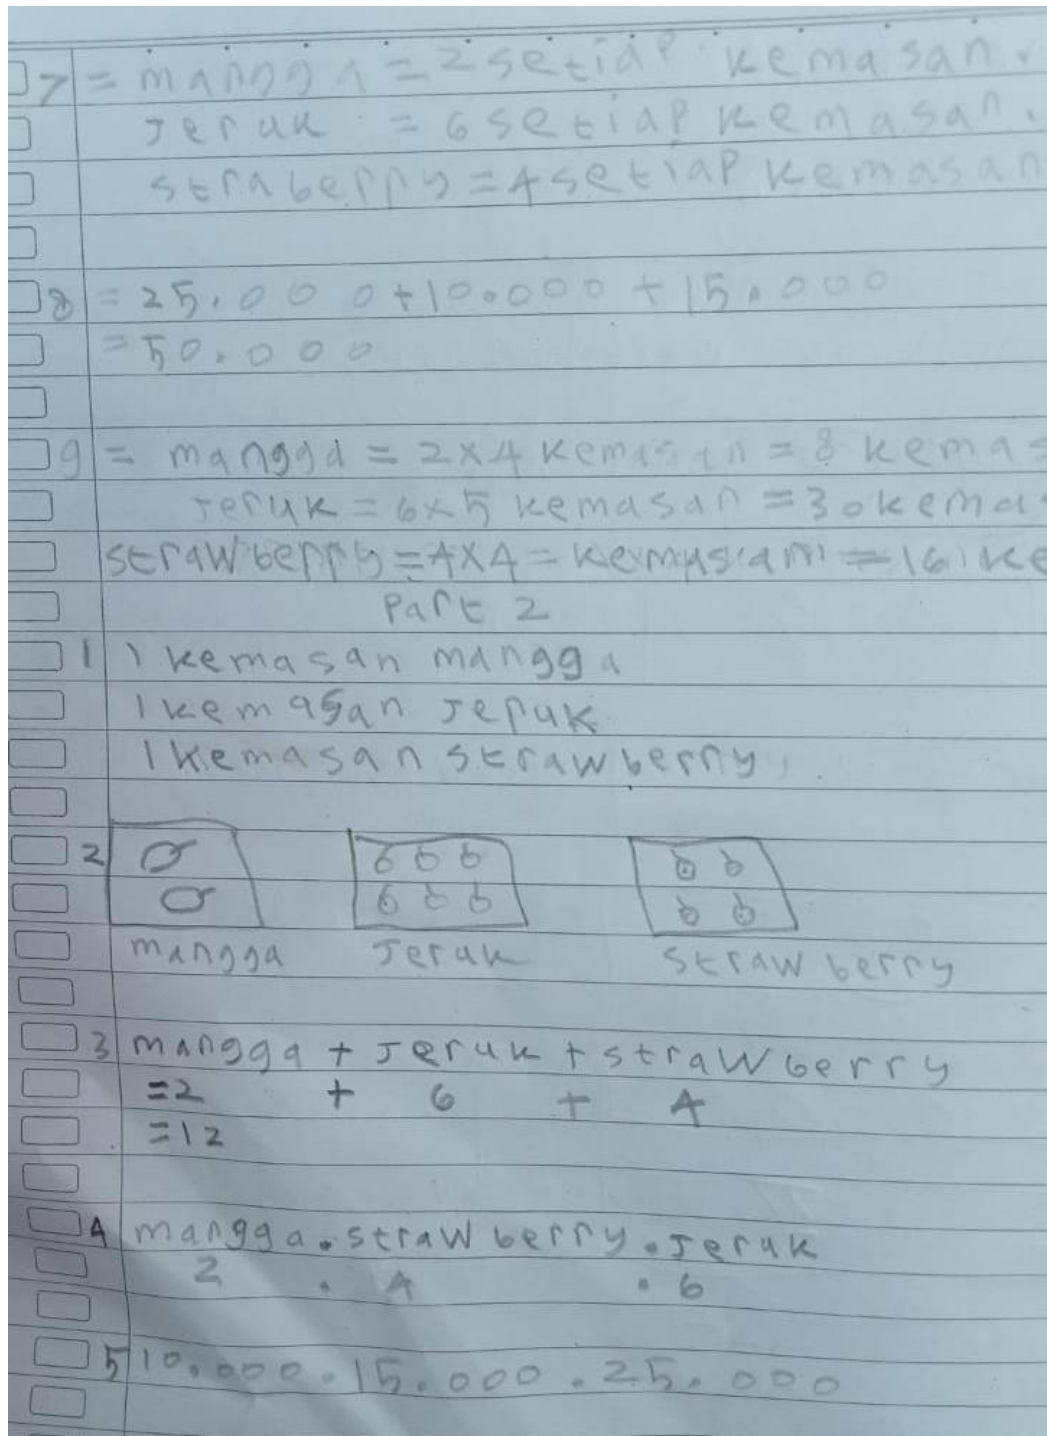 7 = mangga = 2 setiap kemasan.
Jeruk = 6 setiap kemasan.
straberry = 4 setiap kemasan
8 = 25.000 + 10.000 + 15.000
= 50.000
9 = mangga = 2x4 kemasan = 8 kemas
Jeruk = 6x5 kemasan = 30 kemas
strawberry = 4x4 = kemasan = 16 ke
Part 2
1 1 kemasan mangga
1 kemasan Jeruk
1 kemasan strawberry
2
mangga Jeruk strawberry
3 mangga + Jeruk + strawberry
=2 + 6 + 4
=12
4 mangga . strawberry . Jeruk
2 . 4 . 6
5 10.000 . 15.000 . 25.000